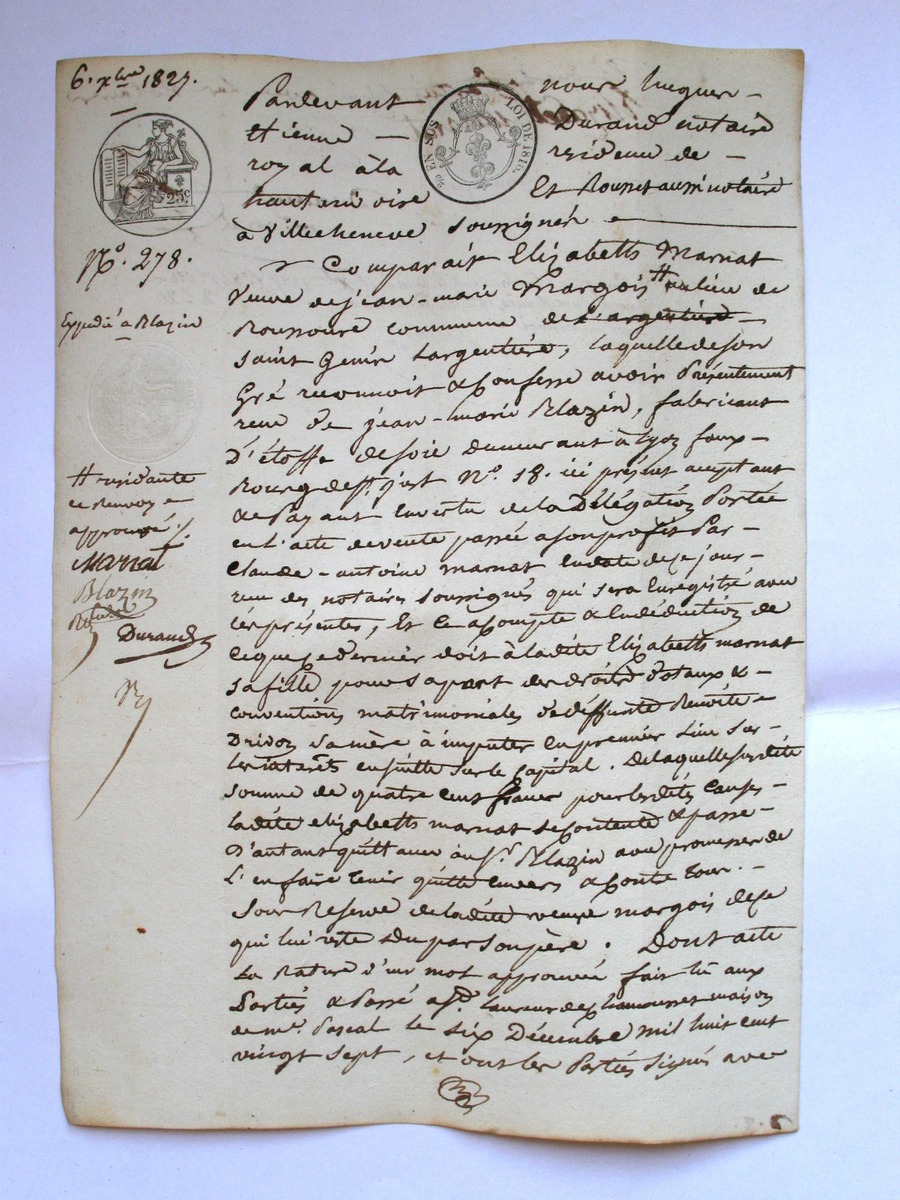 6. xbre 1827.
25c
EN SUS LOI DE 1816.
No. 278.
Expédié a Blazin
# residante
ce Renvoy
approuvé /.
Marnat
Blazin
Durand
Pardevant nous hugues
Etienne – Durand notaire
royal à la residence de –
haute rivoire Et Rousset aussi notaire
à Villecheneve soussignés
Comparait Elizabeth Marnat
Veuve de jean-marie Margois # au lieu de
Roussoure commune de l'argentiere
saint Genis Largentiére, laquelle de son
Gré reconnoit & Confesse avoir Présentement
reçu de jean-marie Blazin, fabricant
D'étoffe de soie demeurant à Lyon faux-
Bourg de St. just No. 18. ici présent acceptant
& Payant En vertu de la Délégation Portée
en L'acte de vente passée a son profit Par
Claude-antoine marnat En date de ce jour-
reçu des notaires soussignés qui sera Enregistré avec
les présentes, Et En acompte & En déduction de
ce que ce dernier doit à ladite Elizabeth marnat
sa fille pour sa part des droits dotaux &
conventions matrimoniales de deffunte Benoite
Drivon sa mère à imputer En premier Lieu sur
les interets ensuitte sur le Capital. De laquelle susdite
somme de quatre cent francs pour lesdites Causes
ladite elizabeth marnat se Contente & passe
D'autant quittance au Sr. Blazin avec promesse de
L'en faire tenir quitte Envers & Contre tous. –
Sous Reserve de ladite veuve margois de ce
qui lui reste du par son père. Dont acte
La Rature d'un mot approuvée fait lu aux
Parties & Passé a St. Laurent de Chamousset maison
de me. Pascal le six Décembre mil huit cent
vingt sept, et ont les Parties signés avec